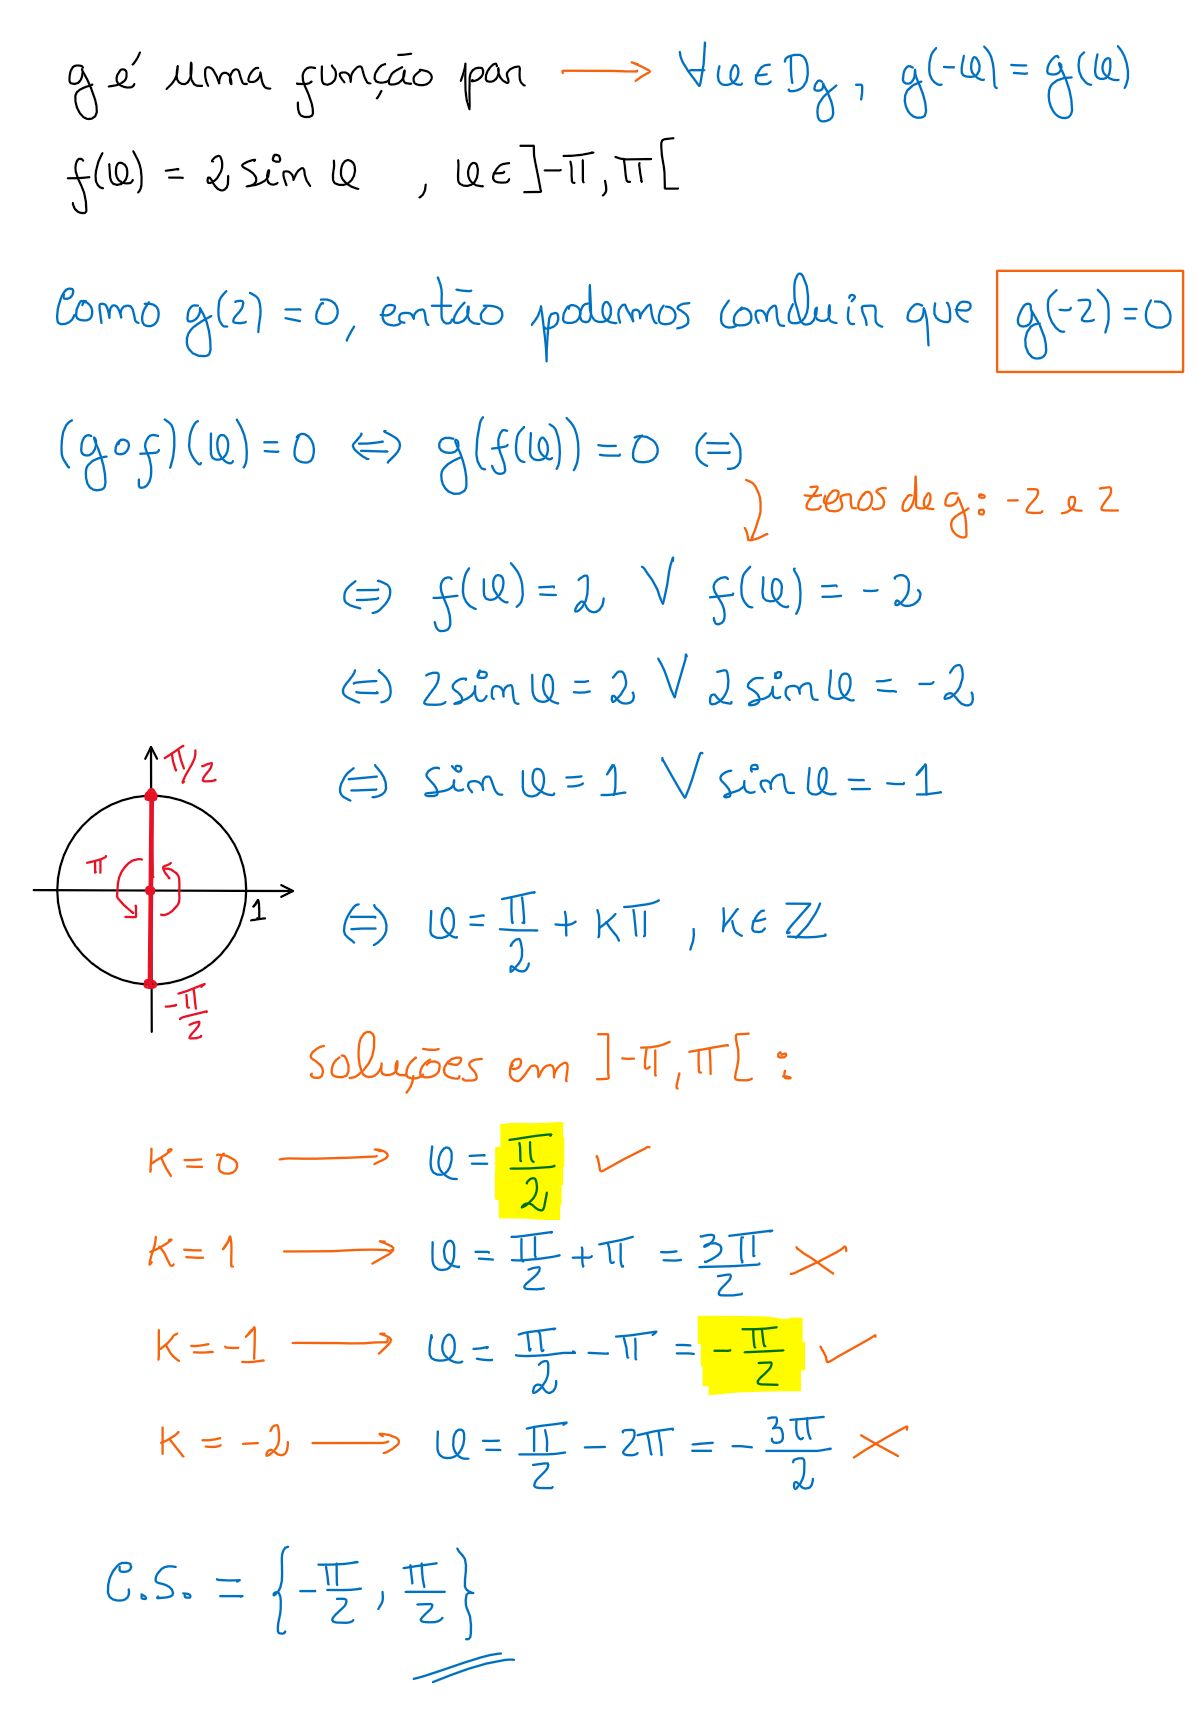 g é uma função par ⟶ ∀x ∈ D_g, g(-x) = g(x)
f(x) = 2 sin x , x ∈ ]-π, π[
Como g(2) = 0, então podemos concluir que g(-2) = 0
(g∘f)(x) = 0 ⇔ g(f(x)) = 0 ⇔
zeros de g: -2 e 2
⇔ f(x) = 2 ∨ f(x) = -2
⇔ 2 sin x = 2 ∨ 2 sin x = -2
⇔ sin x = 1 ∨ sin x = -1
π/2
π
1
-π/2
⇔ x = π/2 + kπ , k ∈ ℤ
soluções em ]-π, π[ :
K = 0 ⟶ x = π/2 ✓
K = 1 ⟶ x = π/2 + π = 3π/2 ✗
K = -1 ⟶ x = π/2 - π = -π/2 ✓
K = -2 ⟶ x = π/2 - 2π = -3π/2 ✗
C.S. = {-π/2, π/2}